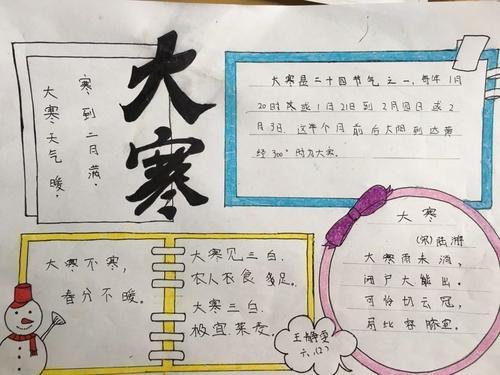 大寒
寒到二月满。
大寒天气暖，
大寒是二十四节气之一，每年1月
20时或1月21日到2月四日或2
月3日。这半个月前后太阳到达黄
经300°时为大寒。
大寒不寒，
春分不暖。
大寒见三白，
农人衣食多足。
大寒三白，
极宜菜麦。
大寒
(宋)陆游
大寒雨未消，
闭户大能出。
可怜切云冠，
局此容膝室。
六.(2)